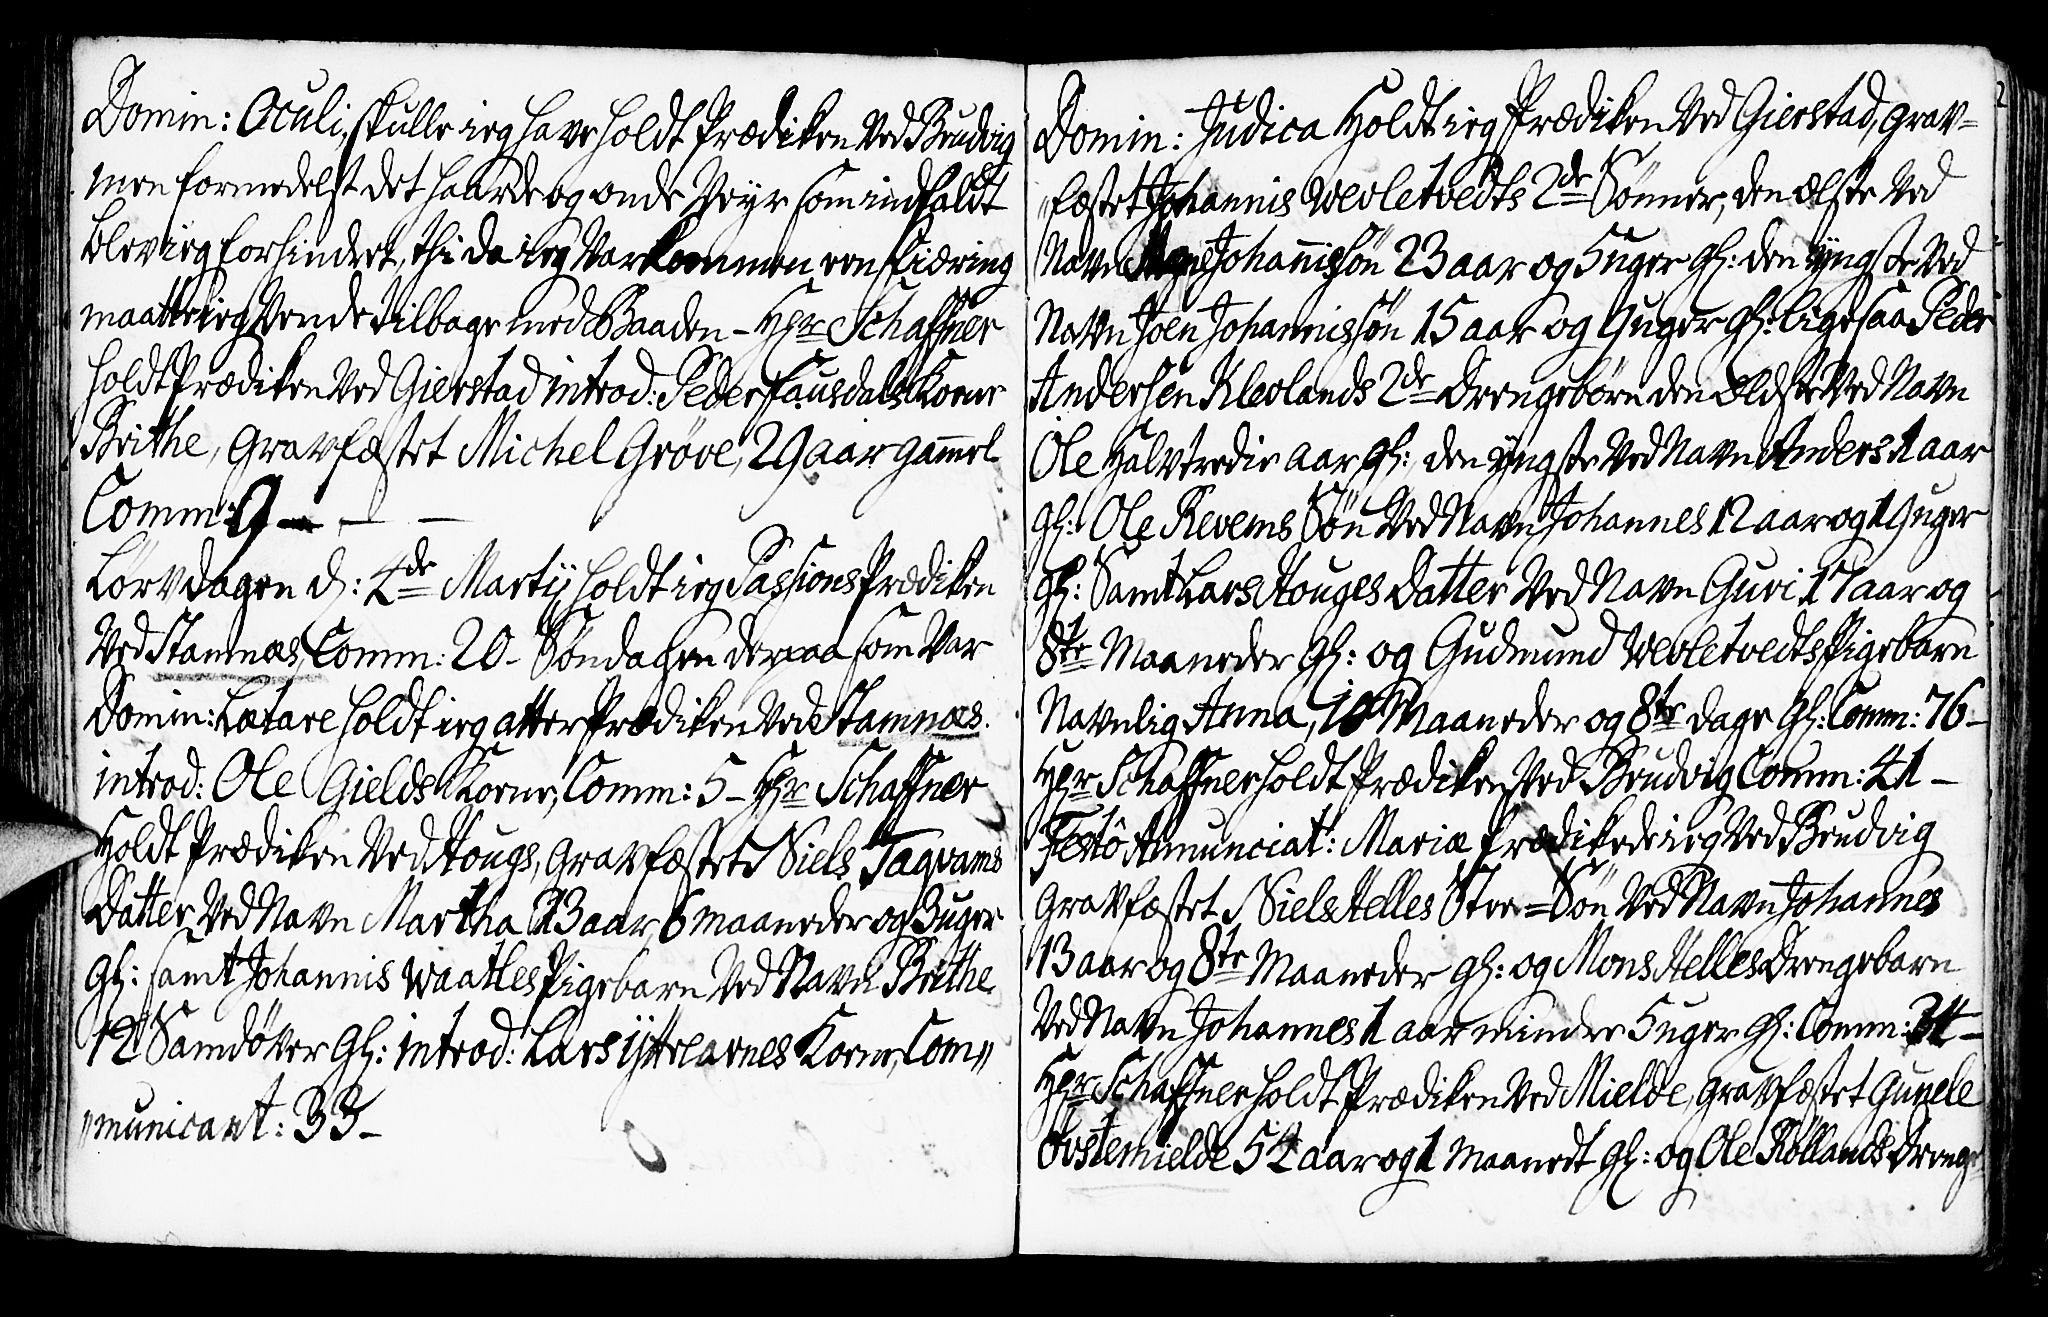 Domin: Oculi, skulle ieg have holdt Prædiken ved Brudvig
men formedelst det haarde og onde Veyr som indfaldt
blev ieg forhindret, thi da ieg var kommen een fiæring
maatte ieg vende tilbage med Baaden - Hr Schaffner
holdt Prædiken ved Gierstad introd: Peder Fausdals Kone
Brithe, Gravfæstet Michel Grøve, 29 aar gammel
Comm: 9 - - -
Løverdagen d: 4de Martij holdt ieg Passions Prædiken
ved Stamnæs, Comm: 20 - Søndagen derpaa som var
Domin: Lætare holdt ieg atter Prædiken ved Stamnæs.
introd: Ole Gields Kone, Comm: 5 - Hr Schaffner
Holdt Prædiken ved Hougs, Gravfæstet Niels Tagvams
Datter ved Navn Martha 23 aar, 6 maaneder og 3 uger
gl: samt Johannis Waatles Pigebarn ved Navn Brithe
12 Samdøver gl: introd: Lars ÿttrearnes Kone, Com„
„municant: 33 -
Domin: Judica Holdt ieg Prædiken ved Gierstad, Grav=
„fæstet Johannis Wevletvedts 2de Sønner, den ælste ved
Navn Johannissøn 23 aar og 5 uger gl: den ÿngste ved
Navn Joen Johannissøn 15 aar og 9 uger gl: ligesaa Peder
Andersen Klevlands 2de Drengebørn den Ældste ved Navn
Ole Halvtredie aar gl:, den ÿngste ved Navn Anders 1 aar
gl: Ole Revems Søn ved Navn Johannes 12 aar og 19 uger
gl: Samt Lars Houges Datter ved Navn Guri 17 aar og
8te Maaneder gl: og Gudmund Wevletvedts Pigebarn
Navnlig Anna, 10 Maaneder og 8te dage gl: Comm: 76 -
Hr Schaffner holdt Prædiken ved Brudvig Comm: 41 -
Festô Annunciat: Mariæ Prædikede ieg ved Brudvig
Gravfæstet Niels Helles Stee=Søn ved Navn Johannes
13 aar og 8te Maaneder gl: og Mons Helles Drengebarn
ved Navn Johannes 1 aar mindre 5 uger gl: Comm: 34 -
Hr Schaffner holdt Prædiken ved Mielde, Gravfæstet Gunele
Øvstemielde 54 aar og 1 Maanedt gl: og Ole Röllands Drenge